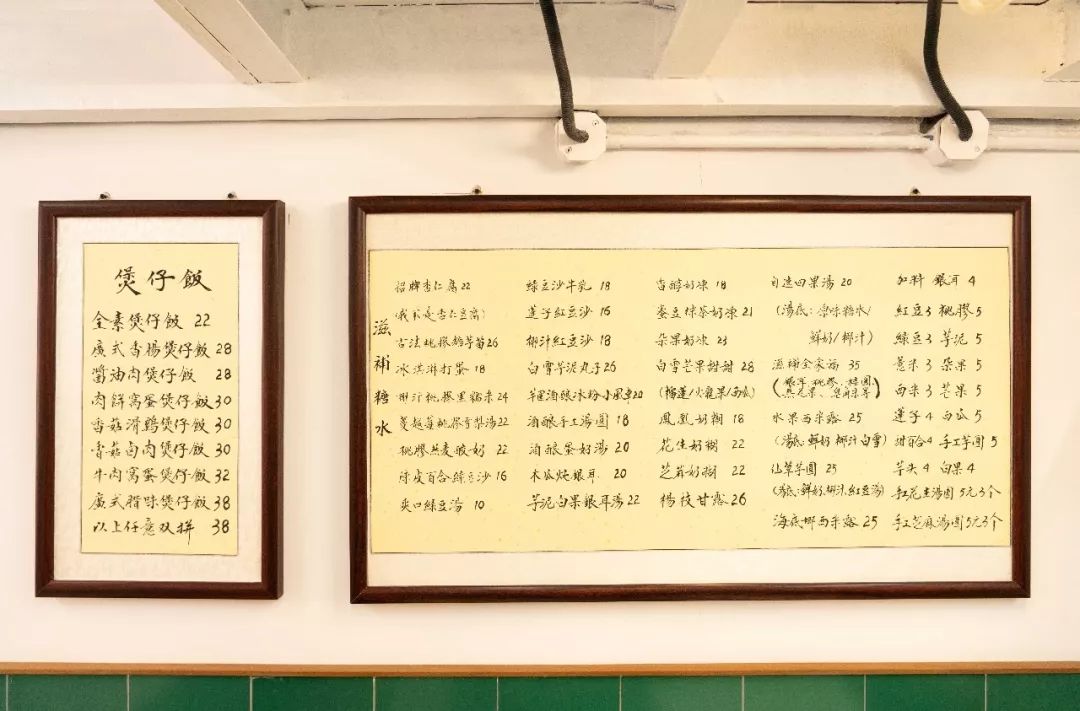 煲仔飯
全素煲仔飯 22
廣式香腸煲仔飯 28
醬油肉煲仔飯 28
肉餅窩蛋煲仔飯 30
香菇滑鷄煲仔飯 30
香菇卤肉煲仔飯 30
牛肉窩蛋煲仔飯 32
廣式腊味煲仔飯 38
以上任意双拼 38
滋補糖水
招牌杏仁腐 22
(我不是杏仁豆腐)
古法桃膠 26
冰淇淋打蛋 18
椰汁桃膠黑糯米 24
蔓越莓桃膠雪梨湯 22
桃膠燕麦酸奶 22
陳皮百合绿豆沙 16
爽口綠豆湯 10
綠豆沙牛乳 18
莲子紅豆沙 16
椰汁紅豆沙 18
白雪芋泥丸子 26
芋圆酒酿冰粉小風車 20
酒酿手工湯圆 18
酒酿蛋奶湯 20
木瓜炖銀耳 20
芋泥白果銀耳湯 22
香醇奶凍 18
蜜豆抹茶奶凍 21
朵果奶凍 23
白雪芒果甜甜 28
(榴莲/火龍果/西瓜)
鳳凰奶糊 18
花生奶糊 22
芝麻奶糊 22
楊枝甘露 26
自选四果湯 20
(湯底:原味糖水/
鮮奶/椰汁)
滋補全家福 35
水果西米露 25
(湯底:鮮奶 椰汁 白雪)
仙草芋圆 25
(湯底:鮮奶 椰汁 紅豆湯)
海底椰西米露 25
加料 銀耳 4
紅豆 3 桃膠 5
綠豆 3 芋泥 5
薏米 3 朵果 5
西米 3 芒果 5
蓮子 4 西瓜 5
甜百合 4 手工芋圆 5
芋头 4 白果 4
手工花生湯圆 5元3个
手工芝麻湯圆 5元3个